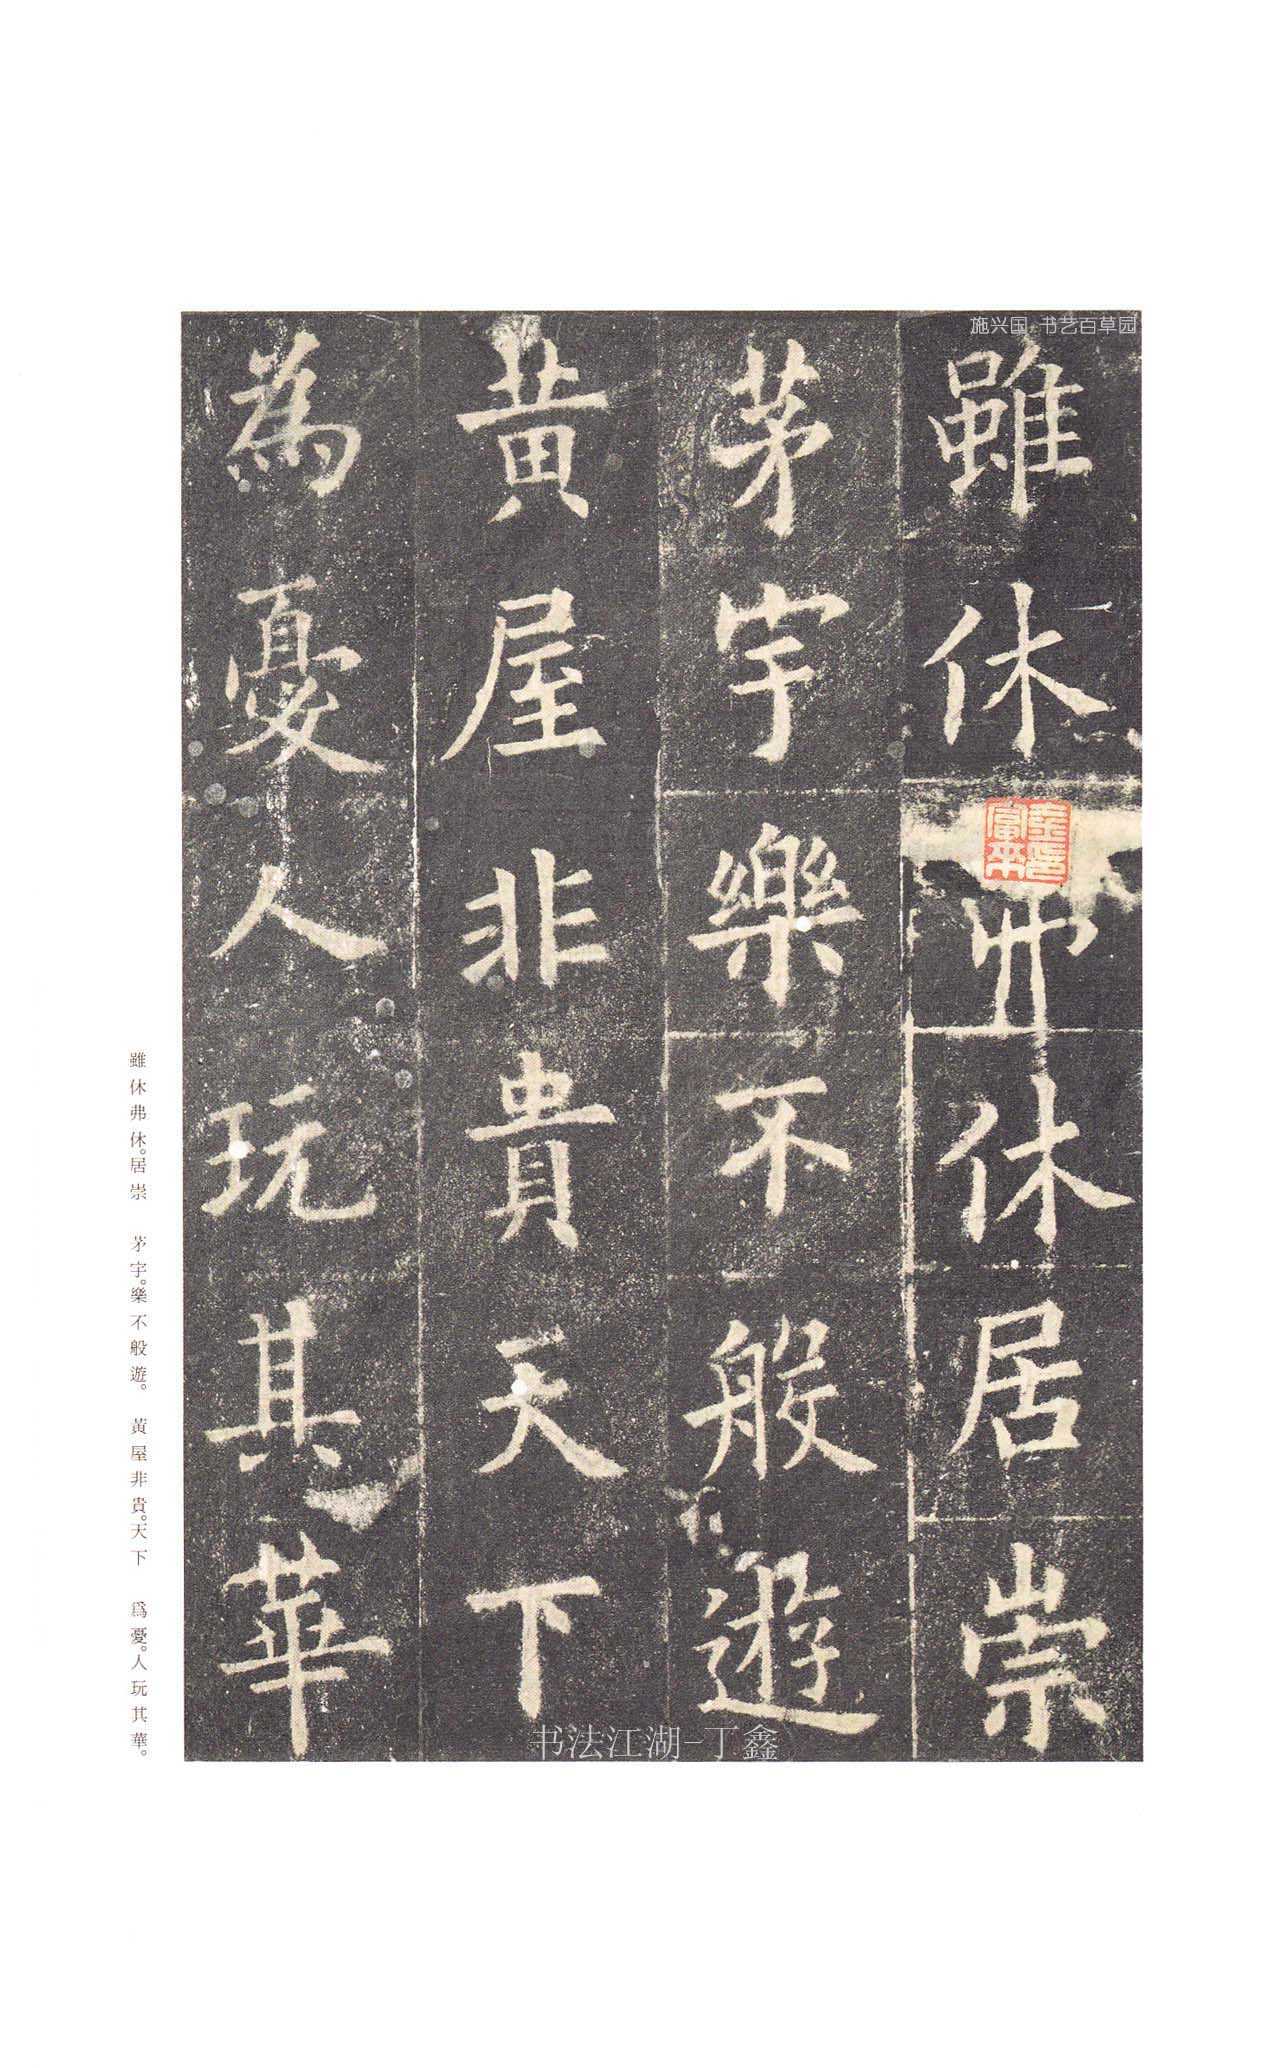 施兴国 书艺百草园
雖休弗休居崇
茅宇樂不般遊
黄屋非貴天下
為憂人玩其華
雖休弗休。居崇　茅宇。樂不般遊。　黃屋非貴。天下　爲憂。人玩其華。
书法江湖-丁鑫